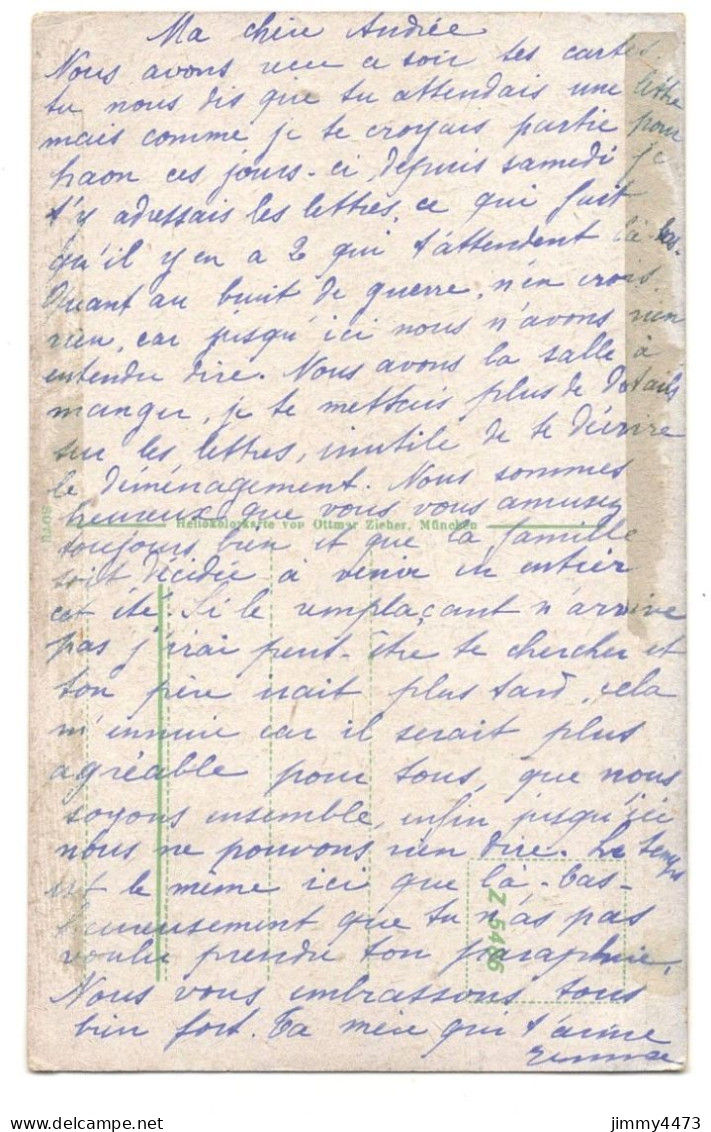 Ma chère Andrée
Nous avons reçu ce soir tes cartes
tu nous dis que tu attendais une lettre
mais comme je te croyais partie pour
haon ces jours-ci, depuis samedi je
t'y adressais les lettres, ce qui fait
qu'il y en a 2 qui t'attendent là-bas.
Quant au bruit de guerre, n'en crois
rien, car jusqu'ici nous n'avons rien
entendu dire. Nous avons la salle à
manger, je te mettais plus de détails
sur les lettres, inutile de te décrire
le déménagement. Nous sommes
heureux que vous vous amusez
Heliokolorkarte von Ottmar Zieher, München
toujours bien et que la famille
soit décidée à venir en entier
cet été. Si le remplaçant n'arrive
pas j'irai peut-être te chercher et
ton père irait plus tard, cela
m'ennuie car il serait plus
agréable pour tous, que nous
soyons ensemble, enfin jusqu'ici
nous ne pouvons rien dire. Le temps
est le même ici que là-bas-
heureusement que tu n'as pas
voulu prendre ton parapluie.
Z 5486
Nous vous embrassons tous
bien fort. Ta mère qui t'aime
jimmy4473